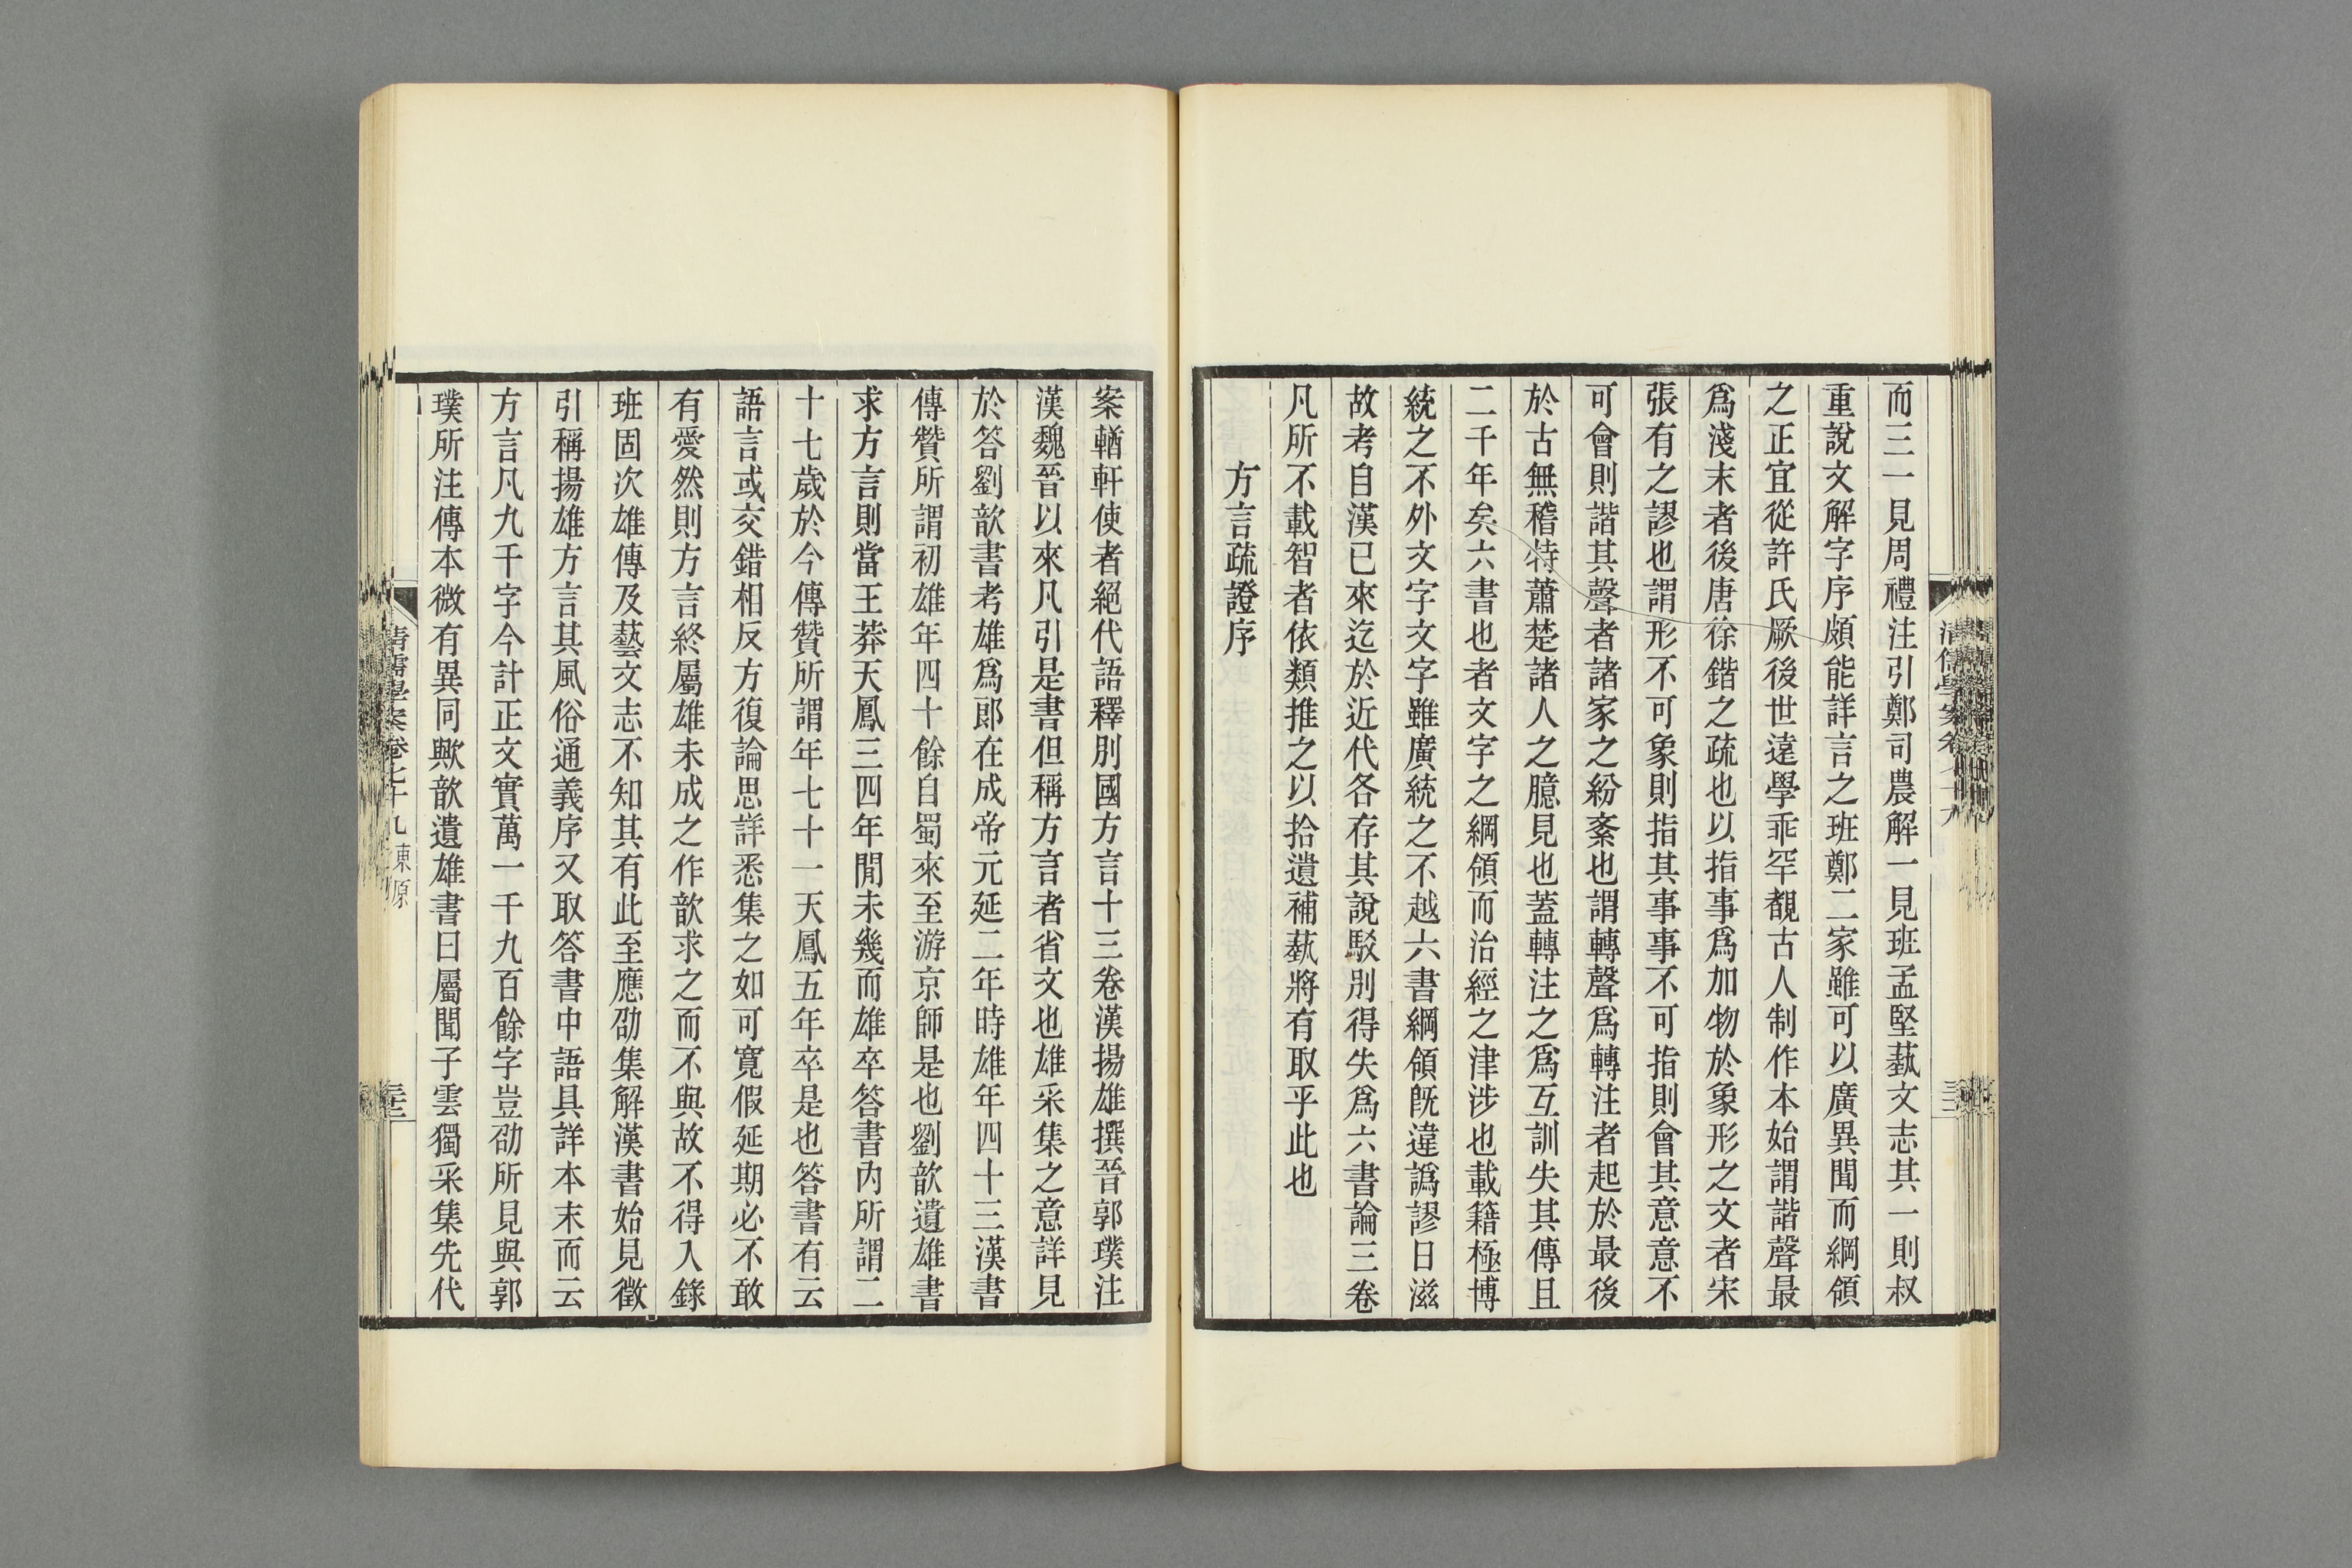 而三一見周禮注引鄭司農解一見班孟堅蓺文志其一則叔
重說文解字序頗能詳言之班鄭二家雖可以廣異聞而綱領
之正宜從許氏厥後世遠學乖罕覩古人制作本始謂諧聲最
爲淺末者後唐徐鍇之疏也以指事爲加物於象形之文者宋
張有之謬也謂形不可象則指其事事不可指則會其意意不
可會則諧其聲者諸家之紛紊也謂轉聲爲轉注者起於最後
於古無稽特蕭楚諸人之臆見也蓋轉注之爲互訓失其傳且
二千年矣六書也者文字之綱領而治經之津涉也載籍極博
統之不外文字文字雖廣統之不越六書綱領旣違譌謬日滋
故考自漢已來迄於近代各存其說駁別得失爲六書論三卷
凡所不載智者依類推之以拾遺補蓺將有取乎此也
方言疏證序
案輶軒使者絕代語釋別國方言十三卷漢揚雄撰晉郭璞注
漢魏晉以來凡引是書但稱方言者省文也雄采集之意詳見
於答劉歆書考雄爲郎在成帝元延二年時雄年四十三漢書
傳贊所謂初雄年四十餘自蜀來至游京師是也劉歆遺雄書
求方言則當王莽天鳳三四年閒未幾而雄卒答書內所謂二
十七歲於今傳贊所謂年七十一天鳳五年卒是也答書有云
語言或交錯相反方復論思詳悉集之如可寬假延期必不敢
有愛然則方言終屬雄未成之作歆求之而不與故不得入錄
班固次雄傳及藝文志不知其有此至應劭集解漢書始見徵
引稱揚雄方言其風俗通義序又取答書中語具詳本末而云
方言凡九千字今計正文實萬一千九百餘字豈劭所見與郭
璞所注傳本微有異同歟歆遺雄書曰屬聞子雲獨采集先代
清儒學案卷七十九 東原